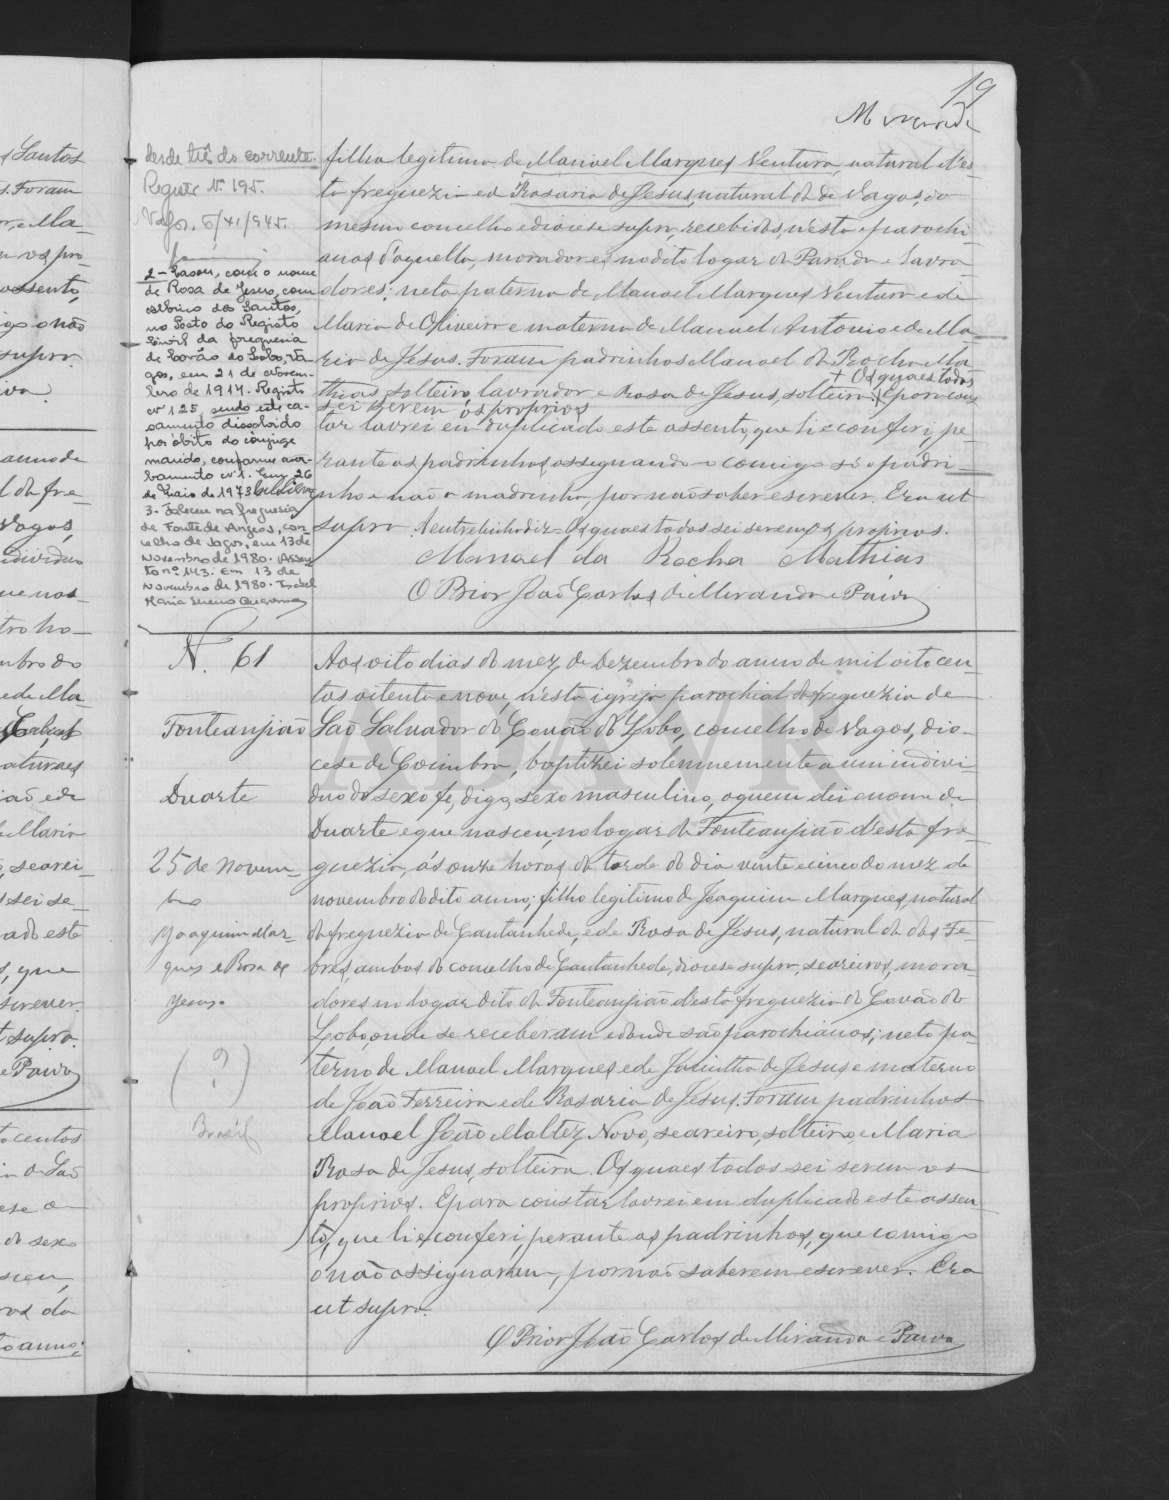 19
Miranda
desde três do corrente.
Registo N.º 195.
Vagos, 6/XI/945.
2 - Casou, com o nome
de Rosa de Jesus, com
Albino dos Santos,
no Posto do Registo
Civil da freguesia
de Covão do Lobo, Va-
gos, em 21 de Novem-
bro de 1914. Registo
nº 125, sendo este ca-
samento dissolvido
por óbito do cônjuge
marido, conforme aver-
bamento nº 1. Em, 26
de Maio de 1973
3 - Faleceu na freguesia
de Fonte de Angeão, con
celho de Vagos, em 13 de
Novembro de 1980. Assen
to nº 143. Em 13 de
Novembro de 1980. Isabel
Maria
filha legitima de Manoel Marques Ventura, natural d'es-
ta freguezia e d Rosaria de Jesus, natural da de Vagos, do
mesmo concelho e diocese supra, recebidos, n'esta e parochi-
anos d'aquella, moradores no dito logar da Parada e lavra-
dores: neta paterna de Manoel Marques Ventura e de
Maria de Oliveira e materna de Manuel Antonio e de Ma-
ria de Jesus. Foram padrinhos Manoel da Rocha Ma-
+ Os quaes todos
thias solteiro, lavrador e Rosa de Jesus, solteira. E para cons-
sei serem os proprios
tar lavrei em duplicado este assento, que li e conferi, pe-
rante os padrinhos assignando-o comigo só o padri-
nho e não a madrinha, por não saber escrever. Era ut
supra. A entrelinha diz - Os quaes todos sei serem os proprios.
Manoel da Rocha Mathias
O Prior João Carlos de Miranda e Paiva
N. 61
Fonteanjião
Duarte
25 de Novem-
bro
Joaquim Mar-
ques e Rosa de
Jesus.
( ? )
Brasil
Aos oito dias do mez de Dezembro do anno de mil oitocen-
tos oitenta e nove, n'esta igreja parochial da freguezia de
São Salvador do Covão do Lobo, concelho de Vagos, dio-
cese de Coimbra, baptizei solemnemente a um indivi-
duo do sexo fe, digo, sexo masculino, a quem dei o nome de
Duarte e que nasceu, no logar da Fonteanjião d'esta fre-
guezia, ás onze horas da tarde do dia vinte e cinco do mez de
novembro do dito anno; filho legitimo de Joaquim Marques, natural
da freguezia de Cantanhede, e de Rosa de Jesus, natural da das Fe-
bres, ambas do concelho de Cantanhede, diocese supra, seareiros, mora-
dores no logar dito da Fonteanjião d'esta freguezia do Covão do
Lobo, onde se receberam e donde são parochianos; neto pa-
terno de Manoel Marques e de Jacintha de Jesus e materno
de João Ferreira e de Rosaria de Jesus. Foram padrinhos
Manoel João Maltez Novo, seareiro, solteiro, e Maria
Rosa de Jesus, solteira. Os quaes todos sei serem os
proprios. E para constar lavrei em duplicado este assen-
to, que li e conferi, perante os padrinhos, que comigo
o não assignaram, por não saberem escrever. Era
ut supra.
O Prior João Carlos de Miranda e Paiva
ADAVR